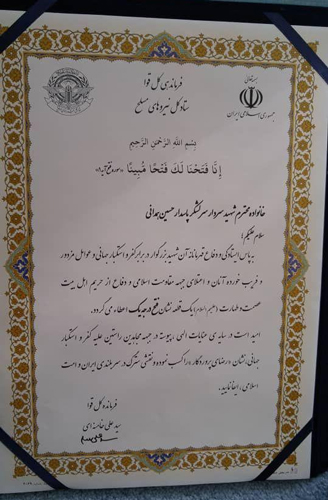 بسمه تعالی
جمهوری اسلامی ایران
فرماندهی کل قوا
ستاد کل نیروهای مسلح
بِسْمِ اللَّهِ الرَّحْمَنِ الرَّحِيمِ
إِنَّا فَتَحْنَا لَكَ فَتْحًا مُّبِينًا «سوره فتح آیه ۱»
خانواده محترم شهید سردار سرلشکر پاسدار حسین همدانی
سلام علیکم؛
به پاس ایستادگی و دفاع قهرمانانه آن شهید بزرگوار در برابر کفر و استکبار جهانی و عوامل مزدور
و فریب خورده آنان و اعتلای جبهه مقاومت اسلامی و دفاع از حریم اهل بیت
عصمت و طهارت (علیهم السلام) یک قطعه نشان فتح درجه یک اعطاء می گردد.
امید است در سایه ی عنایات الهی، پیوسته در جبهه مجاهدین راستین علیه کفر و استکبار
جهانی، نشان «رضای پروردگار» را کسب نموده و نقشی مشترک در سربلندی ایران و امت
اسلامی، ایفا نمایید.
فرمانده کل قوا
سید علی خامنه ای